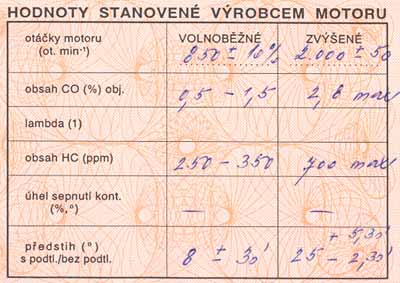 HODNOTY STANOVENÉ VÝROBCEM MOTORU
otáčky motoru VOLNOBĚŽNÉ ZVÝŠENÉ
(ot. min⁻¹) 850 ± 10% 2.000 ± 50
obsah CO (%) obj. 0,5 – 1,5 2,8 max
lambda (1)
obsah HC (ppm) 250 – 350 700 max
úhel sepnutí kont.
(%,°) — —
předstih (°) + 5,30'
s podtl./bez podtl. 8 ± 30' 25 – 2,30'